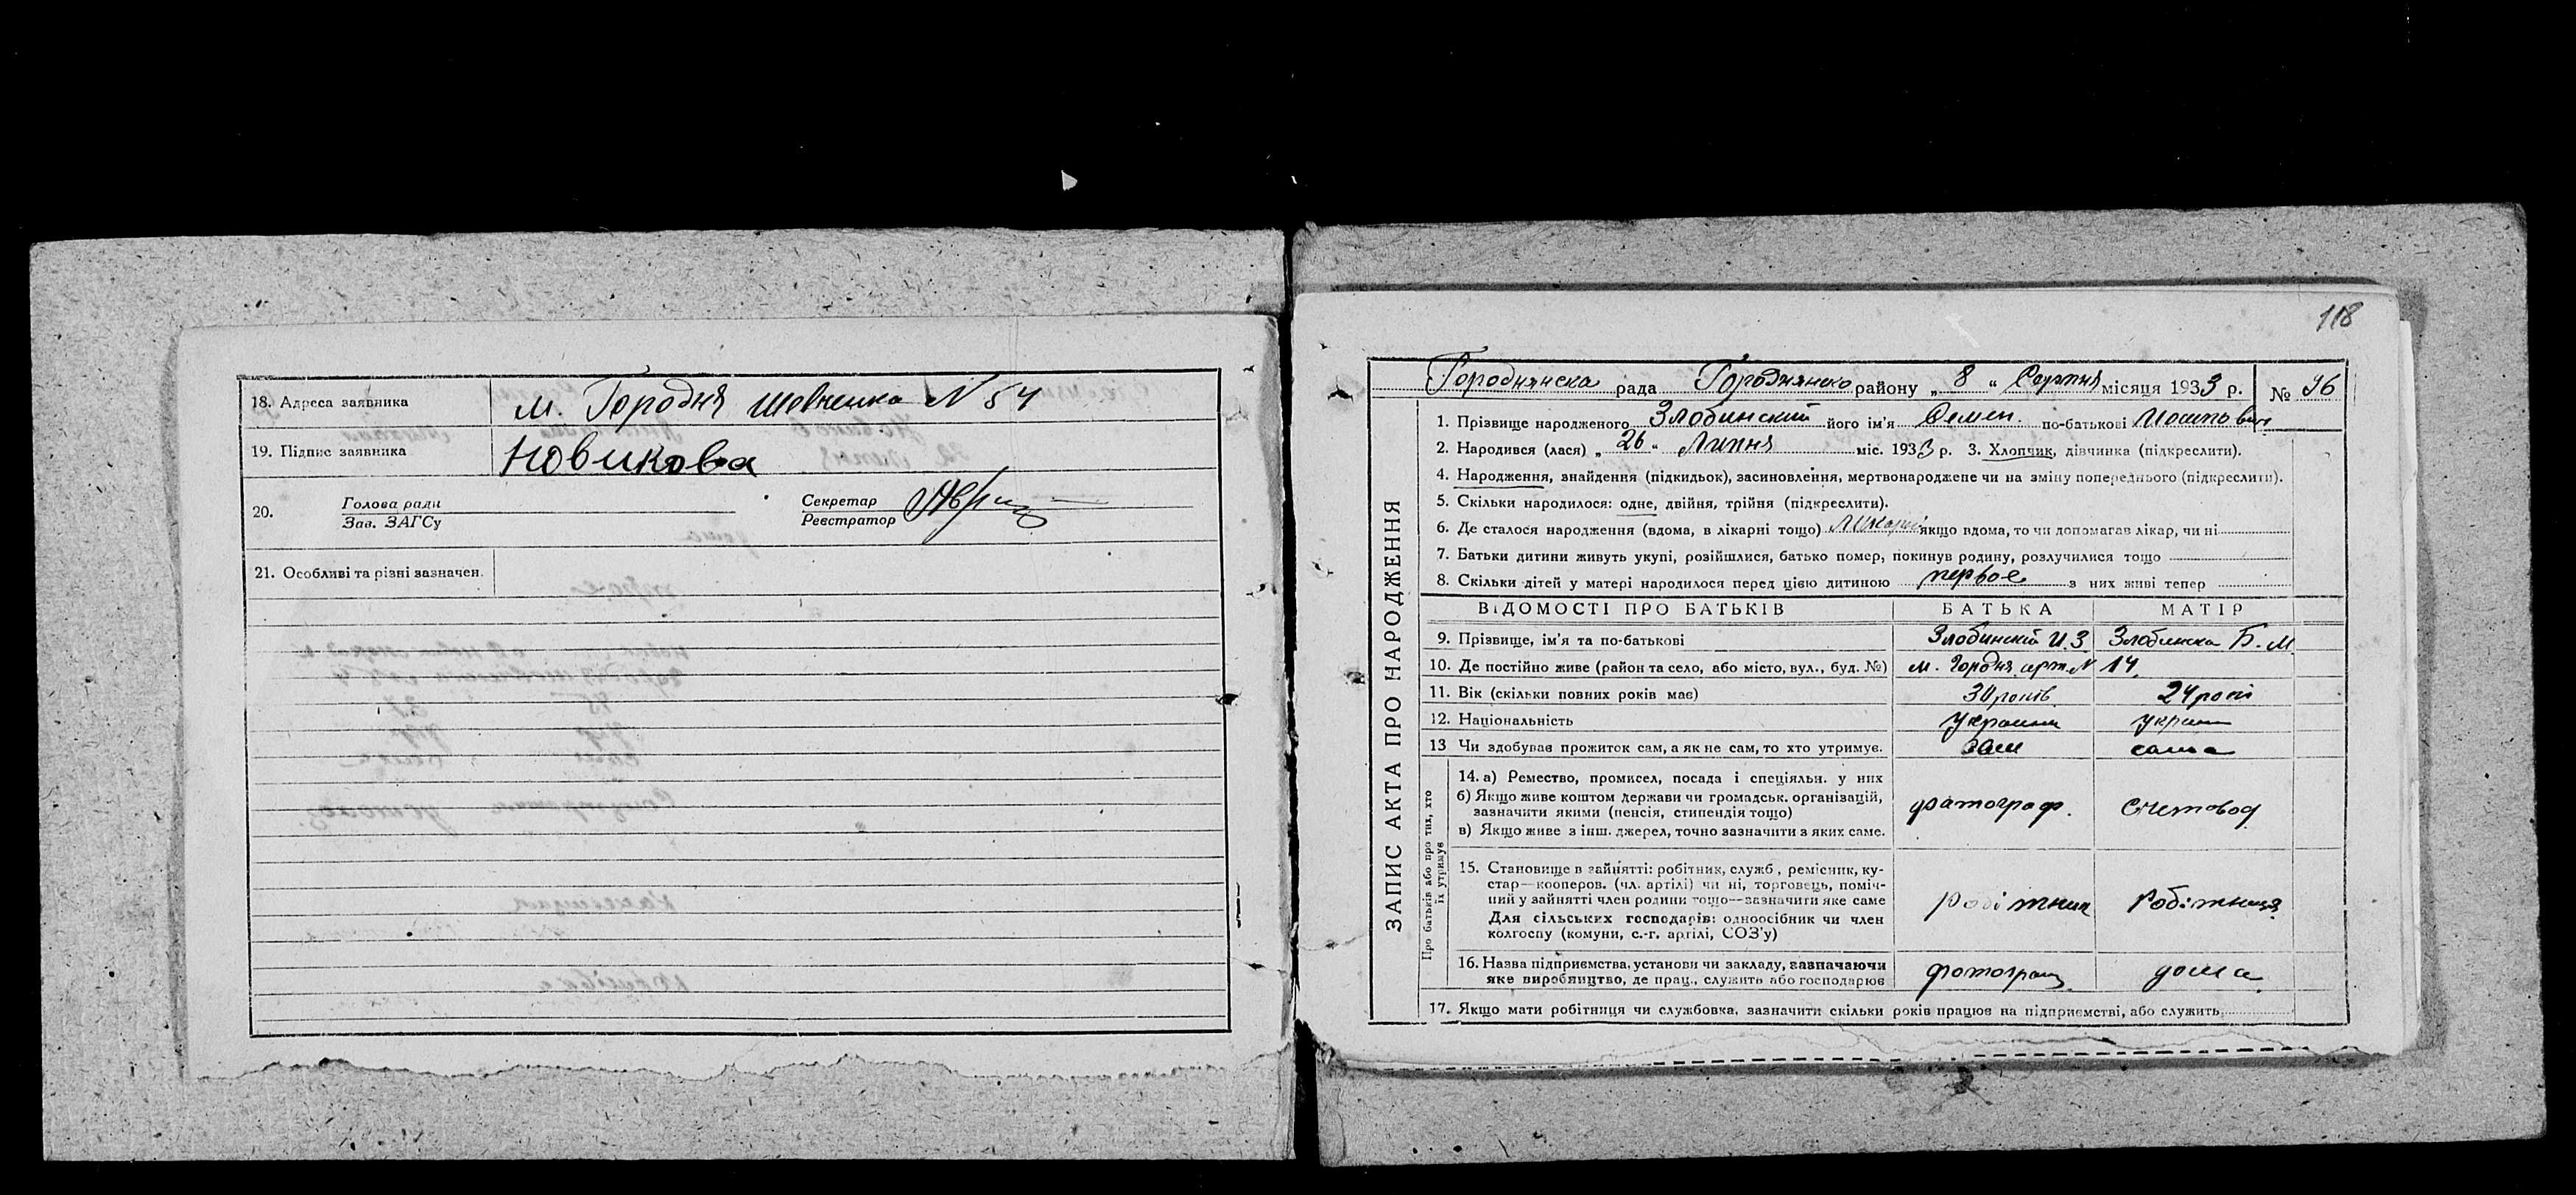 18. Адреса заявника м. Городня Шевченка N 54
19. Підпис заявника Новикова
20. Голова ради Зав. ЗАГСу Секретар Реєстратор
21. Особливі та різні зазначен.
118
Городнянска рада Городнянско району „ 8 “ Серпня місяця 1933 р. № 96
ЗАПИС АКТА ПРО НАРОДЖЕННЯ
1. Прізвище народженого Злобинский його ім'я Семен. по-батькові
2. Народився (лася) „ 26 “ Липня міс. 1933 р. 3. Хлопчик, дівчинка (підкреслити).
4. Народження, знайдення (підкидьок), засиновлення, мертвонароджене чи на зміну попереднього (підкреслити).
5. Скільки народилося: одне, двійня, трійня (підкреслити).
6. Де сталося народження (вдома, в лікарні тощо) якщо вдома, то чи допомагав лікар, чи ні
7. Батьки дитини живуть укупі, розійшлися, батько помер, покинув родину, розлучилися тощо
8. Скільки дітей у матері народилося перед цією дитиною первое з них живі тепер
ВІДОМОСТІ ПРО БАТЬКІВ БАТЬКА МАТІР
9. Прізвище, ім'я та по-батькові Злобинскій И.З Злобинска Б.М
10. Де постійно живе (район та село, або місто, вул., буд. №) м. Городня арт. N 14.
11. Вік (скільки повних років має) 30 років 24 рокі
12. Національність
13 Чи здобував прожиток сам, а як не сам, то хто утримує. сам сама
Про батьків або про тих, хто їх утримує
14. а) Ремество, промисел, посада і спеціяльн. у них
б) Якщо живе коштом держави чи громадськ. організацій,
зазначити якими (пенсія, стипендія тощо) фатограф. счетовод
в) Якщо живе з інш. джерел, точно зазначити з яких саме.
15. Становище в зайнятті: робітник, служб, ремісник, ку-
стар—кооперов. (чл. артілі) чи ні, торговець, поміч-
ний у зайнятті член родини тощо—зазначити яке саме робітник Робітниця
Для сільських господарів: одноосібник чи член
колгоспу (комуни, с.-г. артілі, СОЗ'у)
16. Назва підприємства, установи чи закладу, зазначаючи
яке виробництво, де прац., служить або господарює дома
17. Якщо мати робітниця чи службовка, зазначити скільки років працює на підприємстві, або служить